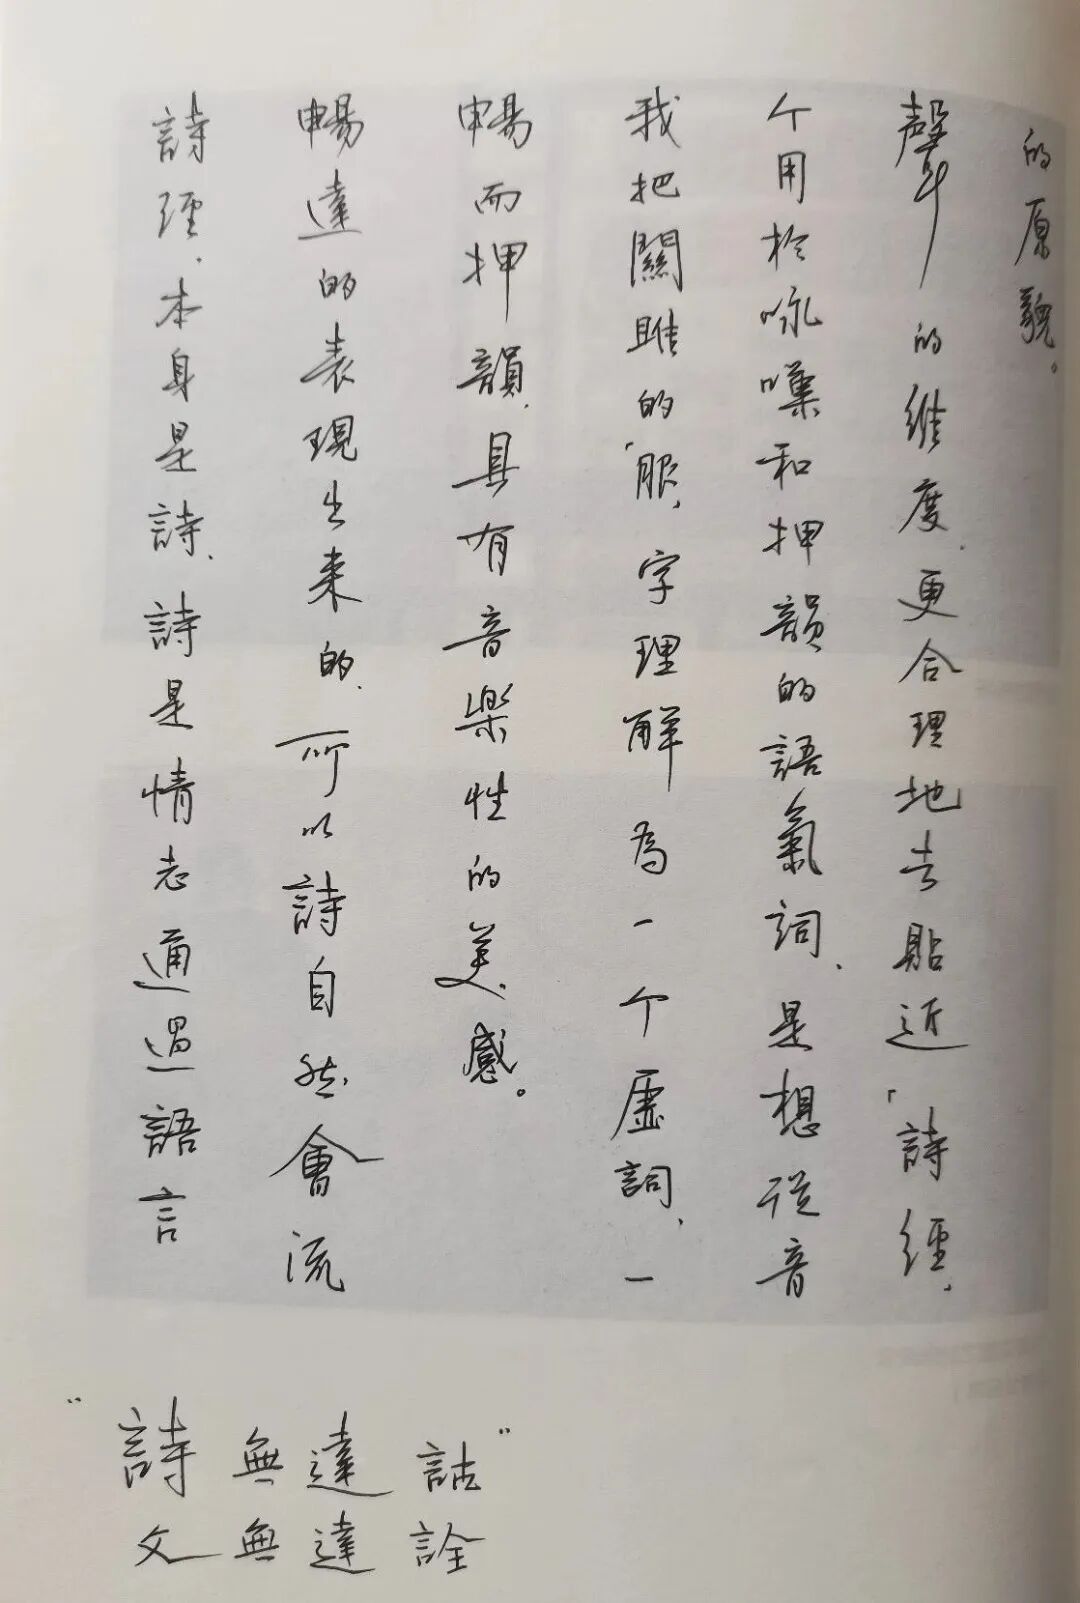 詩經、本身是詩、詩是情志通過語言
暢達的表現出来的、所以詩自然會流
暢而押韻、具有音樂性的美感。
我把關雎的「服、字理解為一个虛詞、一
个用於咏嘆和押韻的語氣詞、是想從音
聲的維度、更合理地去貼近「詩經、
的原貌。
“詩無達詁”
文無達詮